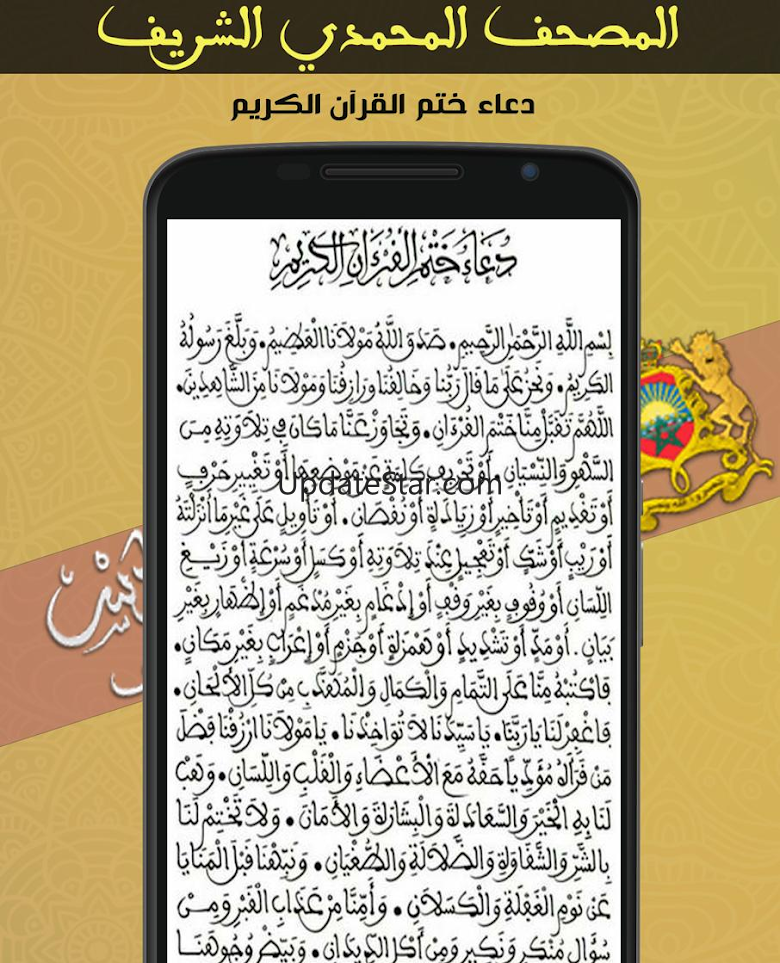 المصحف المحمدي الشريف
دعاء ختم القرآن الكريم
دُعَاءُ خَتْمِ الْقُرْءَانِ الْكَرِيمِ
بِسْمِ اللَّهِ الرَّحْمَٰنِ الرَّحِيمِ. صَدَقَ اللَّهُ مَوْلَانَا الْعَظِيمُ. وَبَلَّغَ رَسُولُهُ
الْكَرِيمُ. وَنَحْنُ عَلَى مَا قَالَ رَبُّنَا وَخَالِقُنَا وَرَازِقُنَا وَمَوْلَانَا مِنَ الشَّاهِدِينَ.
اللَّهُمَّ تَقَبَّلْ مِنَّا خَتْمَ الْقُرْءَانِ. وَتَجَاوَزْ عَنَّا مَا كَانَ فِي تِلَاوَتِهِ مِنَ
السَّهْوِ وَالنِّسْيَانِ. أَوْ تَحْرِيفِ كَلِمَةٍ عَنْ مَوْضِعِهَا أَوْ تَغْيِيرِ حَرْفٍ
UpdateStar.com
أَوْ تَقْدِيمٍ أَوْ تَأْخِيرٍ أَوْ زِيَادَةٍ أَوْ نُقْصَانٍ. أَوْ تَأْوِيلٍ عَلَى غَيْرِ مَا أَنْزَلْتَهُ
أَوْ رَيْبٍ أَوْ شَكٍّ أَوْ تَعْجِيلٍ عِنْدَ تِلَاوَتِهِ أَوْ كَسَلٍ أَوْ سُرْعَةٍ أَوْ زَيْغِ
اللِّسَانِ أَوْ وُقُوفٍ بِغَيْرِ وَقْفٍ أَوْ إِدْغَامٍ بِغَيْرِ مُدْغَمٍ أَوْ إِظْهَارٍ بِغَيْرِ
بَيَانٍ. أَوْ مَدٍّ أَوْ تَشْدِيدٍ أَوْ هَمْزَةٍ أَوْ جَزْمٍ أَوْ إِعْرَابٍ بِغَيْرِ مَكَانٍ.
فَاكْتُبْهُ مِنَّا عَلَى التَّمَامِ وَالْكَمَالِ وَالْمُهَذَّبِ مِنْ كُلِّ الْأَلْحَانِ.
فَاغْفِرْ لَنَا يَا رَبَّنَا. يَا سَيِّدَنَا لَا تُوَاخِذْنَا. يَا مَوْلَانَا ارْزُقْنَا فَضْلَ
مَنْ قَرَأَهُ مُؤَدِّياً حَقَّهُ مَعَ الْأَعْضَاءِ وَالْقَلْبِ وَاللِّسَانِ. وَهَبْ
لَنَا بِهِ الْخَيْرَ وَالسَّعَادَةَ وَالْبِشَارَةَ وَالْأَمَانَ. وَلَا تَخْتِمْ لَنَا
بِالشَّرِّ وَالشَّقَاوَةِ وَالضَّلَالَةِ وَالطُّغْيَانِ. وَنَبِّهْنَا قَبْلَ الْمَنَايَا
عَنْ نَوْمِ الْغَفْلَةِ وَالْكَسَلَانِ. وَأَمِّنَّا مِنْ عَذَابِ الْقَبْرِ وَمِنْ
سُؤَالِ مُنْكَرٍ وَنَكِيرٍ وَمِنْ أَكْلِ الدِّيدَانِ. وَبَيِّضْ وُجُوهَنَا